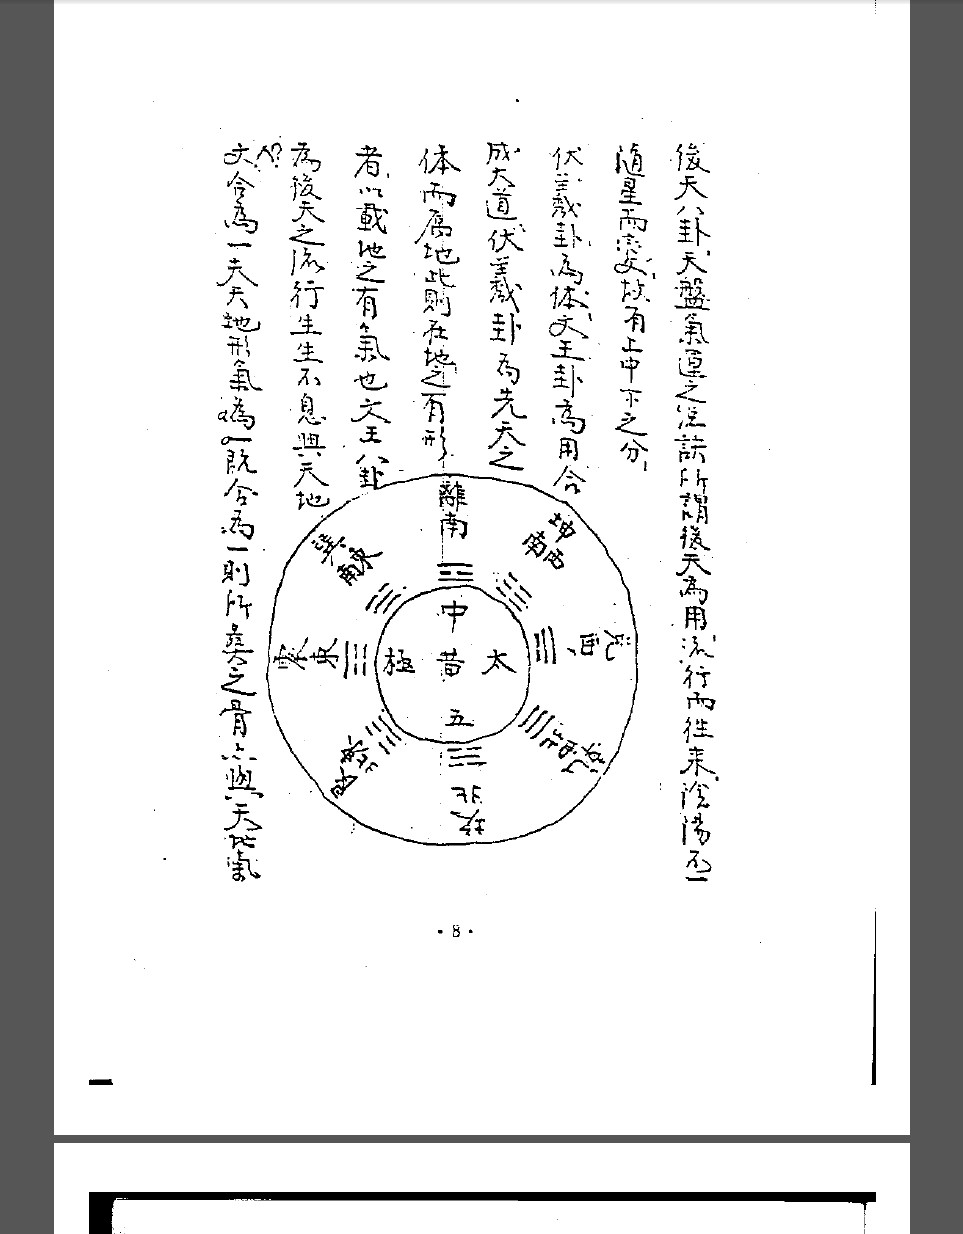 後天八卦、天盤氣運之說訣所謂後天為用、流行而徃来、陰陽不一
隨星而變、故有上中下之分、
伏羲卦、為体、文王卦為用合
成大道伏羲卦為先天之
体而属地此則在地之有形
者、以載地之有氣也文王八卦
為後天之流行生生不息與天地
文合為一夫天地形氣為一既合為一則所奠之骨亦與天地氣
離南
坤西南
兌西
乾西北
坎北
艮東北
震東
巽東南
中
太黃極
五
·8·